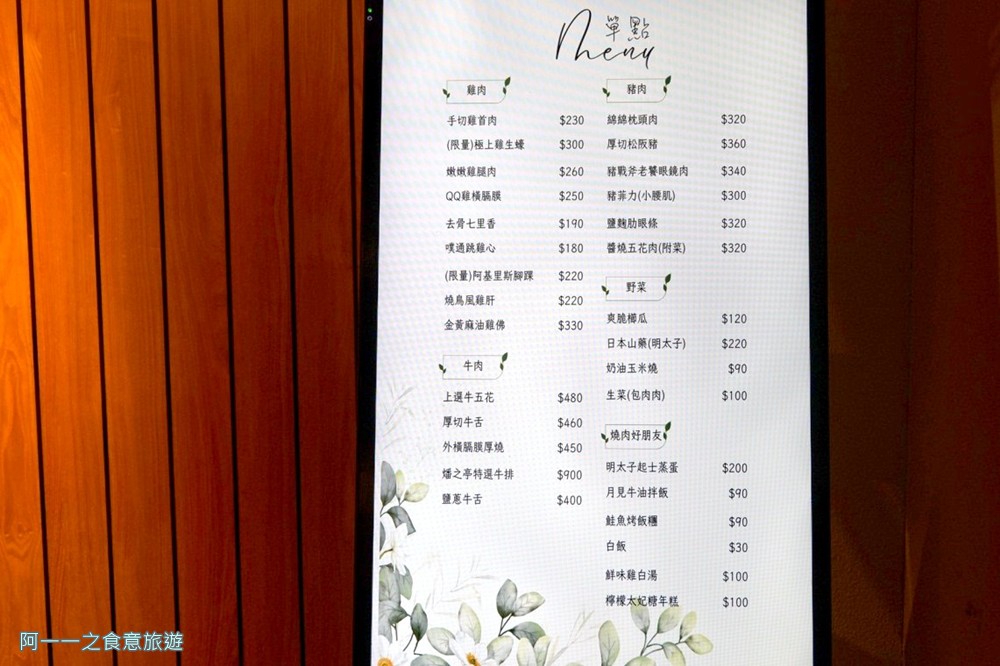 單點
Menu
雞肉
手切雞首肉 $230
(限量)極上雞生蠔 $300
嫩嫩雞腿肉 $260
QQ雞橫膈膜 $250
去骨七里香 $190
噗通跳雞心 $180
(限量)阿基里斯腳踝 $220
燒鳥風雞肝 $220
金黃麻油雞佛 $330
牛肉
上選牛五花 $480
厚切牛舌 $460
外橫膈膜厚燒 $450
燔之亭特選牛排 $900
鹽蔥牛舌 $400
豬肉
綿綿枕頭肉 $320
厚切松阪豬 $360
豬戰斧老饕眼鏡肉 $340
豬菲力(小腰肌) $300
鹽麴肋眼條 $320
醬燒五花肉(附菜) $320
野菜
爽脆櫛瓜 $120
日本山藥(明太子) $220
奶油玉米燒 $90
生菜(包肉肉) $100
燒肉好朋友
明太子起士蒸蛋 $200
月見牛油拌飯 $90
鮭魚烤飯糰 $90
白飯 $30
鮮味雞白湯 $100
檸檬太妃糖年糕 $100
阿一一之食意旅遊